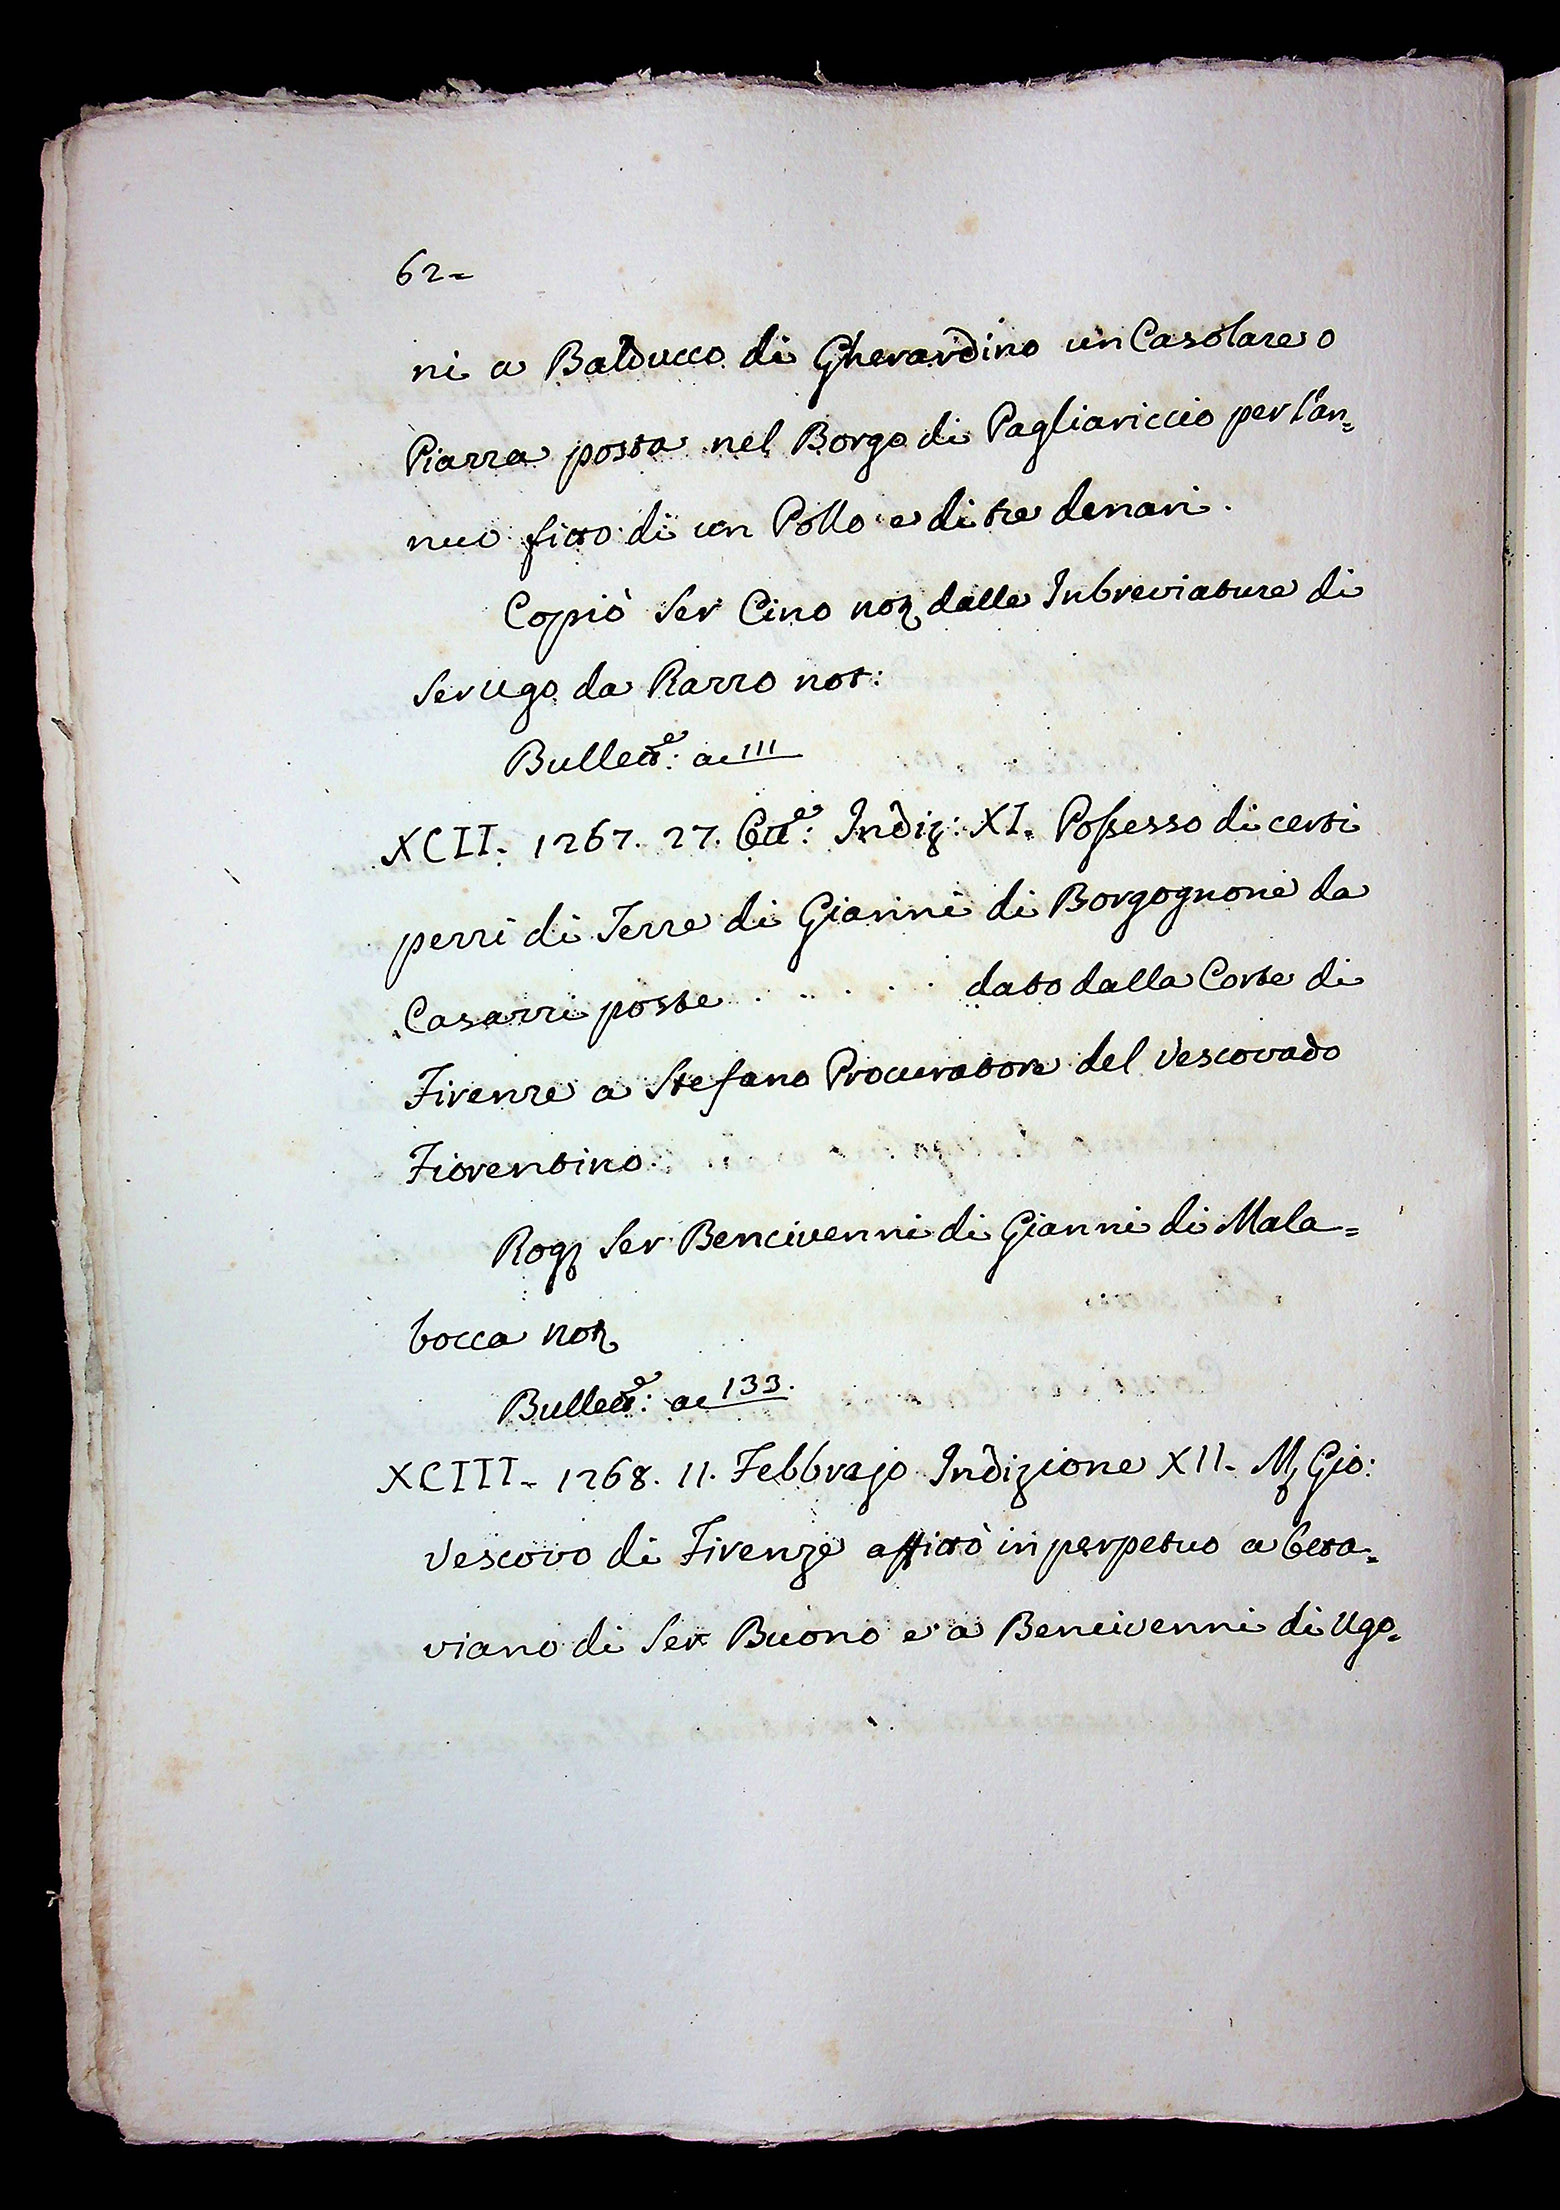 62=
ni a Balducco di Gherardino un Casolare o
Piazza posta nel Borgo di Pagliariccio per l'an=
nuo fitto di un Pollo e di tre denari.
Copiò Ser Cino not. dalle Inbreviature di
Ser Ugo da Razzo not:
Bullett.e: a c 111
XCII. 1267. 27. Ott.e: Indiz: XI. Possesso di certi
pezzi di Terre di Gianni di Borgognone da
Casazzi poste . . . . . . dato dalla Corte di
Firenze a Stefano Procuratore del Vescovado
Fiorentino.
Rog. Ser Bencivenni di Gianni di Mala=
bocca not.
Bullett.e: a c 133.
XCIII. 1268. 11. Febbrajo Indizione XII. M. Gio:
Vescovo di Firenze affittò in perpetuo a Otta=
viano di Ser Buono e a Bencivenni di Ugo=